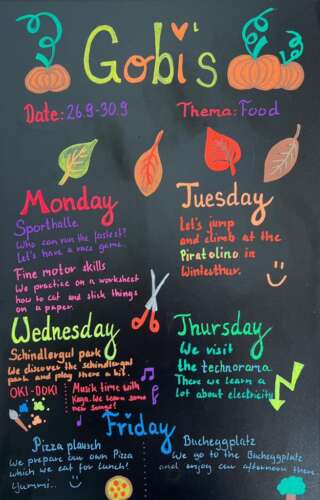 Gobi's
Date: 26.9-30.9
Thema: Food
Monday
Sporthalle
Who can run the fastest?
Let's have a race game.
Fine motor skills
We practice on a worksheet
how to cut and stick things
on a paper.
Tuesday
Let's jump
and climb at the
Piratolino in
Winterthur.
Wednesday
Schindlergut park
We discover the Schindlergut
park and play there a bit.
OKI-DOKI
Musik time with
Kaya. We learn some
new songs!
Thursday
We visit
the technorama.
There we learn a
lot about electricity
Friday
Pizza plausch
We prepare our own Pizza
which we eat for lunch!
Yummi..
Bucheggplatz
We go to the Bucheggplatz
and enjoy our afternoon there